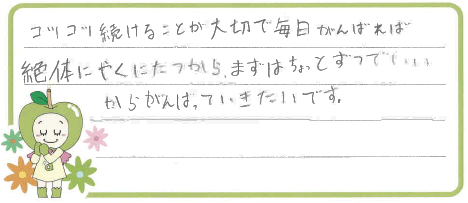 コツコツ続けることが大切で毎日がんばれば
絶体にやくにたつから、まずはちょっとずつでいい
からがんばっていきたいです。